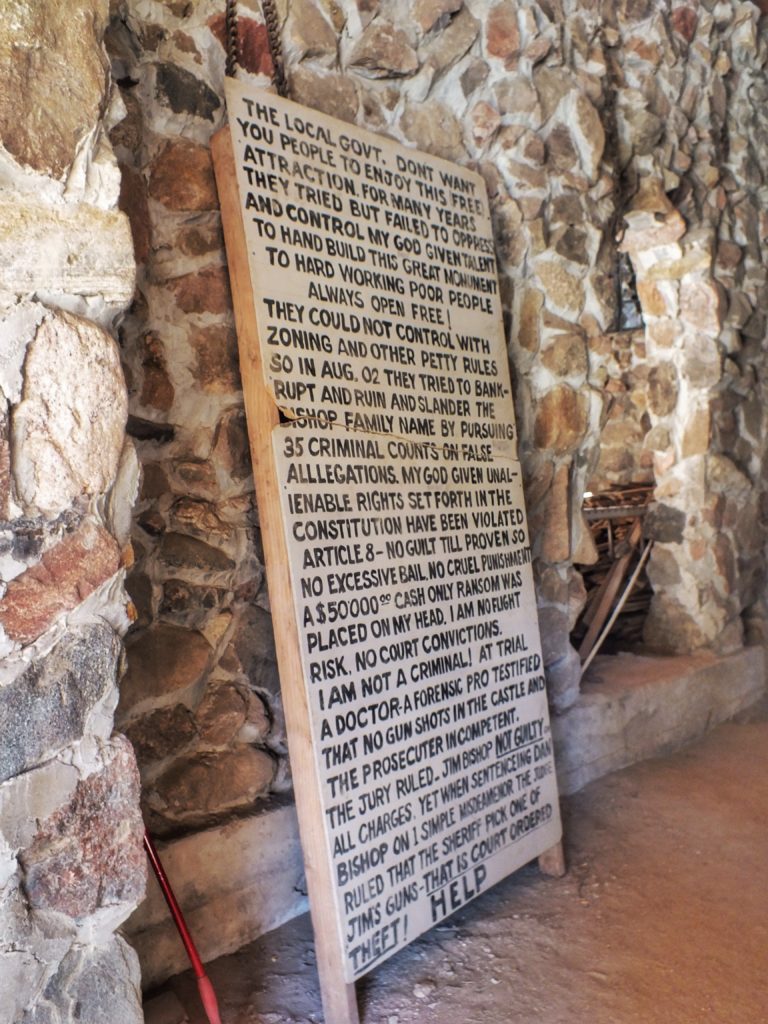 THE LOCAL GOVT. DONT WANT
YOU PEOPLE TO ENJOY THIS FREE!
ATTRACTION. FOR MANY YEARS
THEY TRIED BUT FAILED TO OPPRESS
AND CONTROL MY GOD GIVEN TALENT
TO HAND BUILD THIS GREAT MONUMENT
TO HARD WORKING POOR PEOPLE
ALWAYS OPEN FREE!
THEY COULD NOT CONTROL WITH
ZONING AND OTHER PETTY RULES
SO IN AUG. 02 THEY TRIED TO BANK-
RUPT AND RUIN AND SLANDER THE
BISHOP FAMILY NAME BY PURSUING
35 CRIMINAL COUNTS ON FALSE
ALLLEGATIONS. MY GOD GIVEN UNAL-
IENABLE RIGHTS SET FORTH IN THE
CONSTITUTION HAVE BEEN VIOLATED
ARTICLE 8-NO GUILT TILL PROVEN SO
NO EXCESSIVE BAIL. NO CRUEL PUNISHMENT
A $50'000.00 CASH ONLY RANSOM WAS
PLACED ON MY HEAD. I AM NO FLIGHT
RISK. NO COURT CONVICTIONS.
I AM NOT A CRIMINAL! AT TRIAL
A DOCTOR-A FORENSIC PRO TESTIFIED
THAT NO GUN SHOTS IN THE CASTLE AND
THE PROSECUTER INCOMPETENT.
THE JURY RULED. JIM BISHOP NOT GUILTY
ALL CHARGES. YET WHEN SENTENCING DAN
BISHOP ON 1 SIMPLE MISDEAMENOR THE JUDGE
RULED THAT THE SHERIFF PICK ONE OF
JIM'S GUNS-THAT IS COURT ORDERED
THEFT! HELP